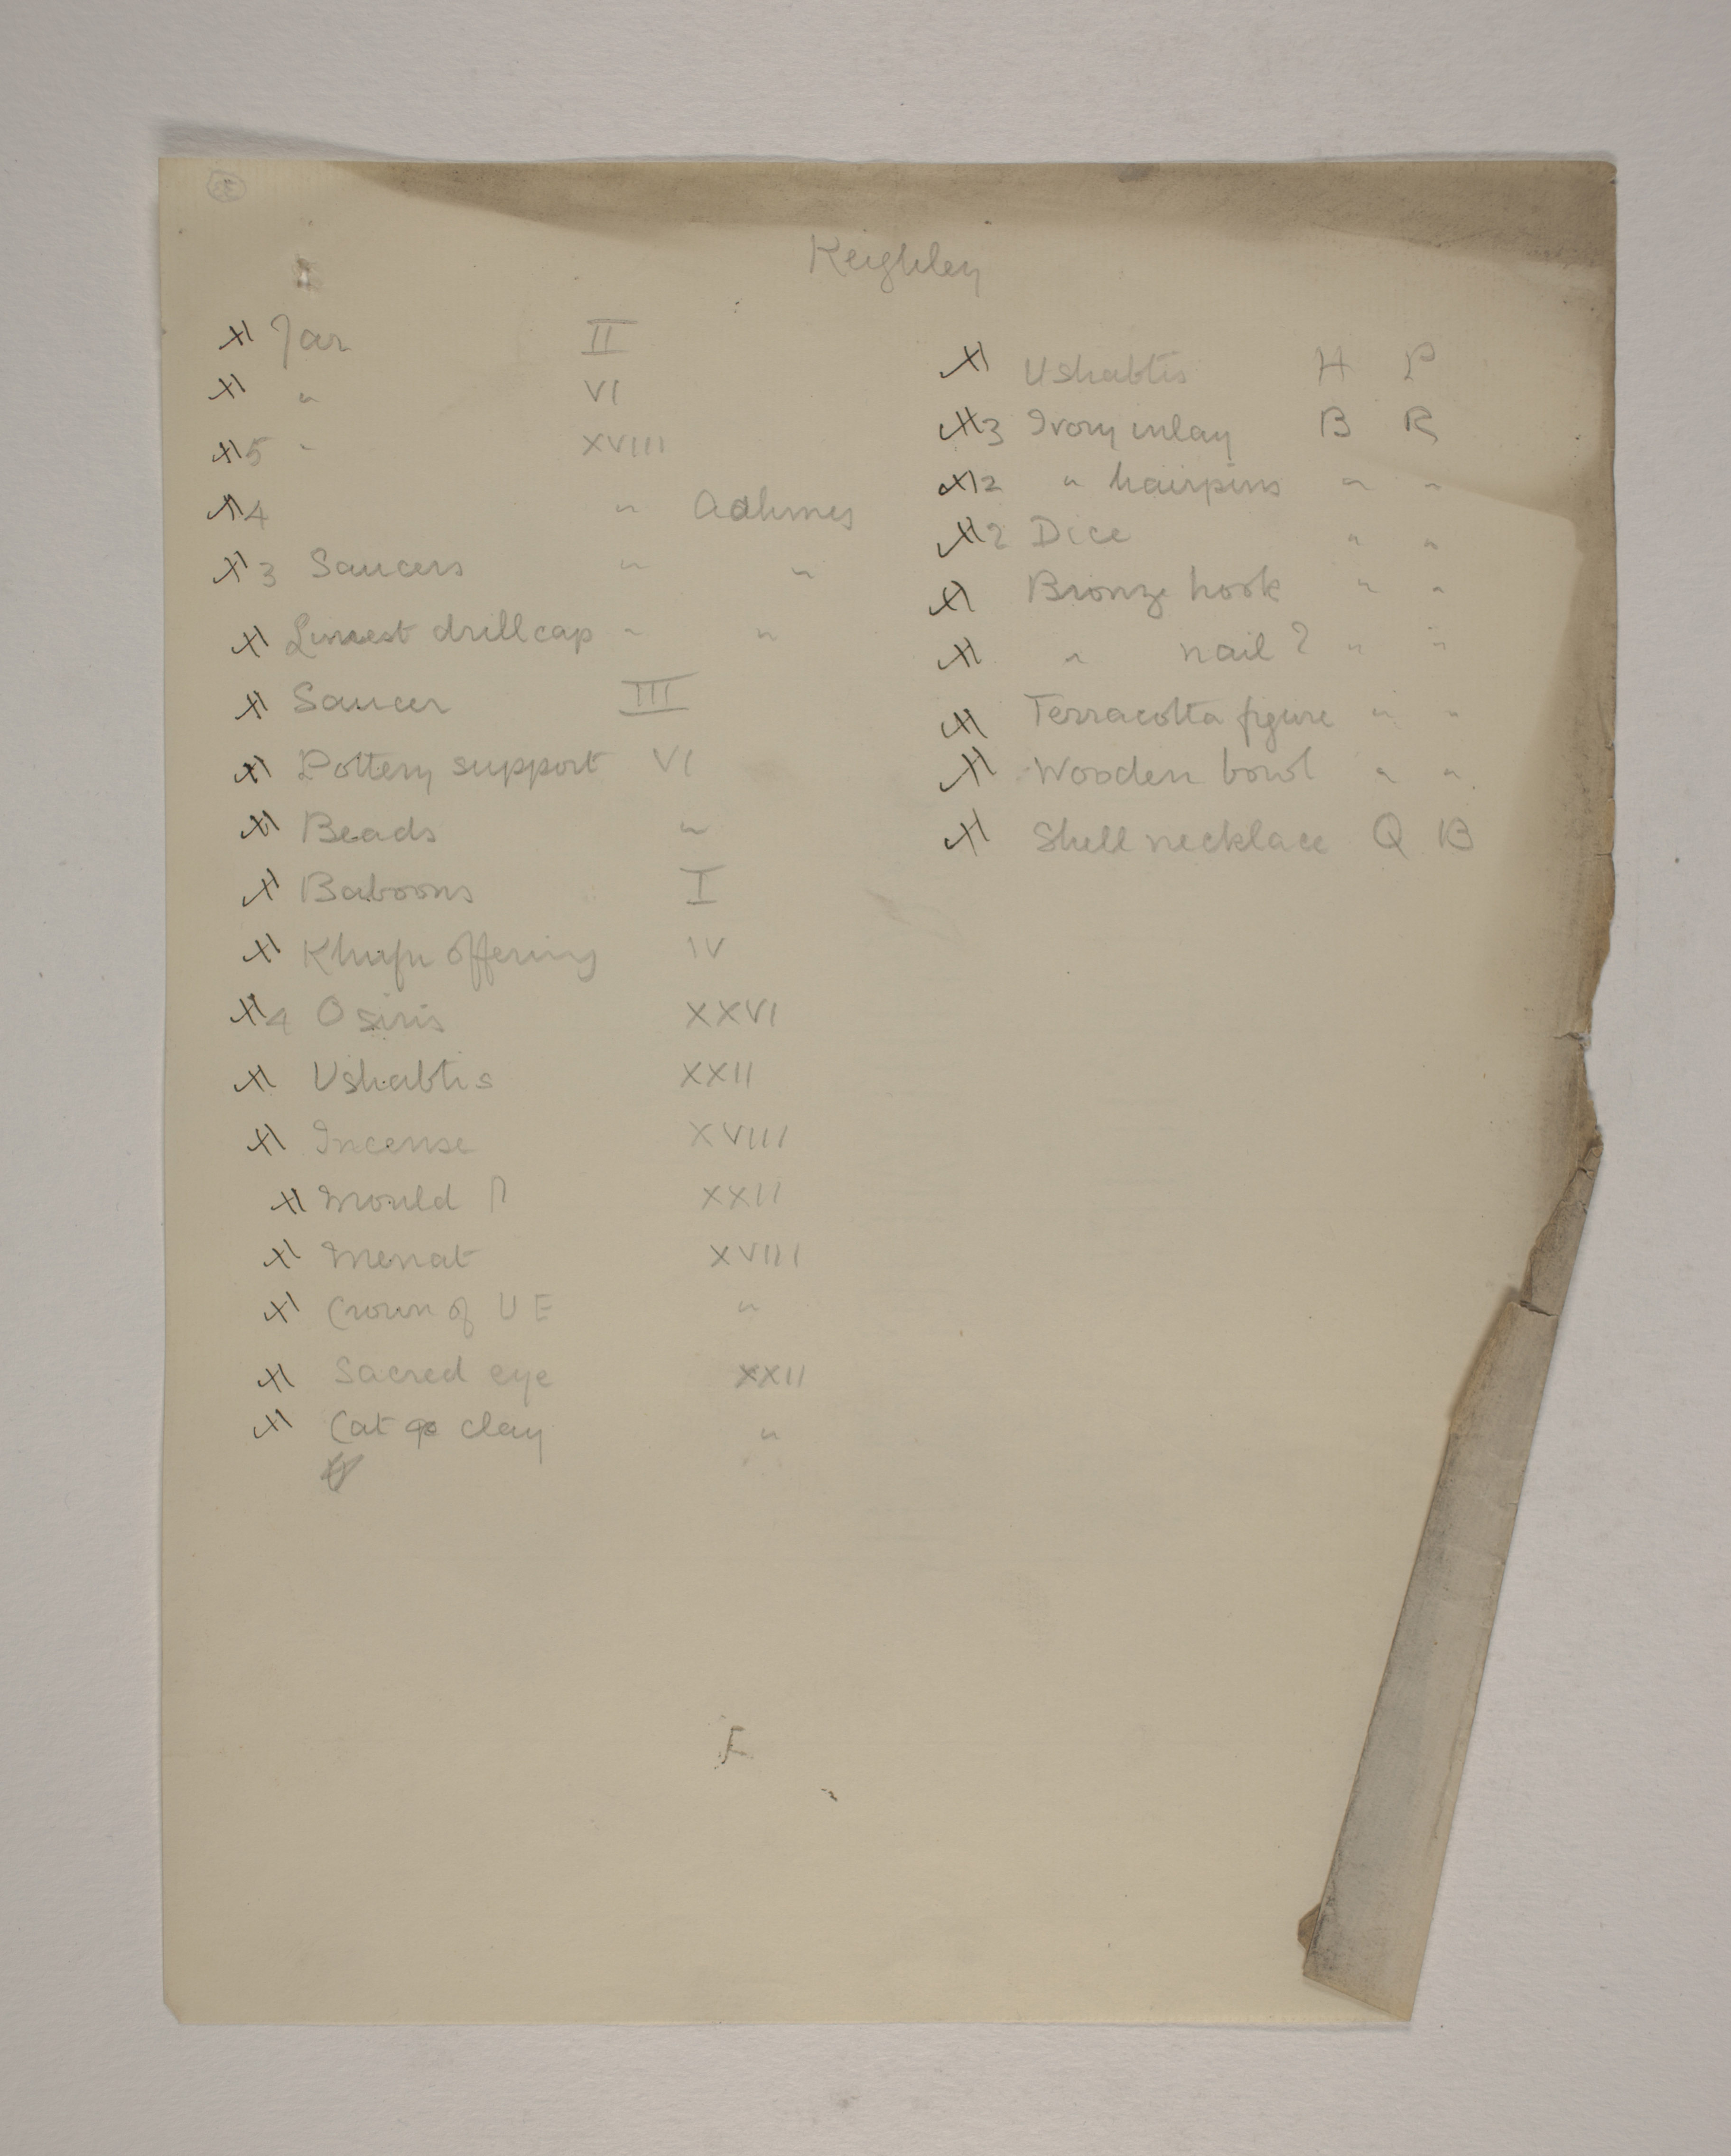 Keighley
Jar II
" VI
5 " XVIII
4 " Aahmes
3 Saucers " "
Limest drill cap " "
Saucer III
Pottery support VI
Beads "
Baboons I
Khufu offering IV
4 Osiris XXVI
Ushabtis XXII
Incense XVIII
Mould XXII
Menat XVIII
Crown of U E "
Sacred eye XXII
Cat clay "
Ushabtis H P
3 Ivory inlay B R
2 " hairpins " "
2 Dice " "
Bronze hook " "
" nail ? " "
Terracotta figure " "
Wooden bowl " "
Shell necklace Q B